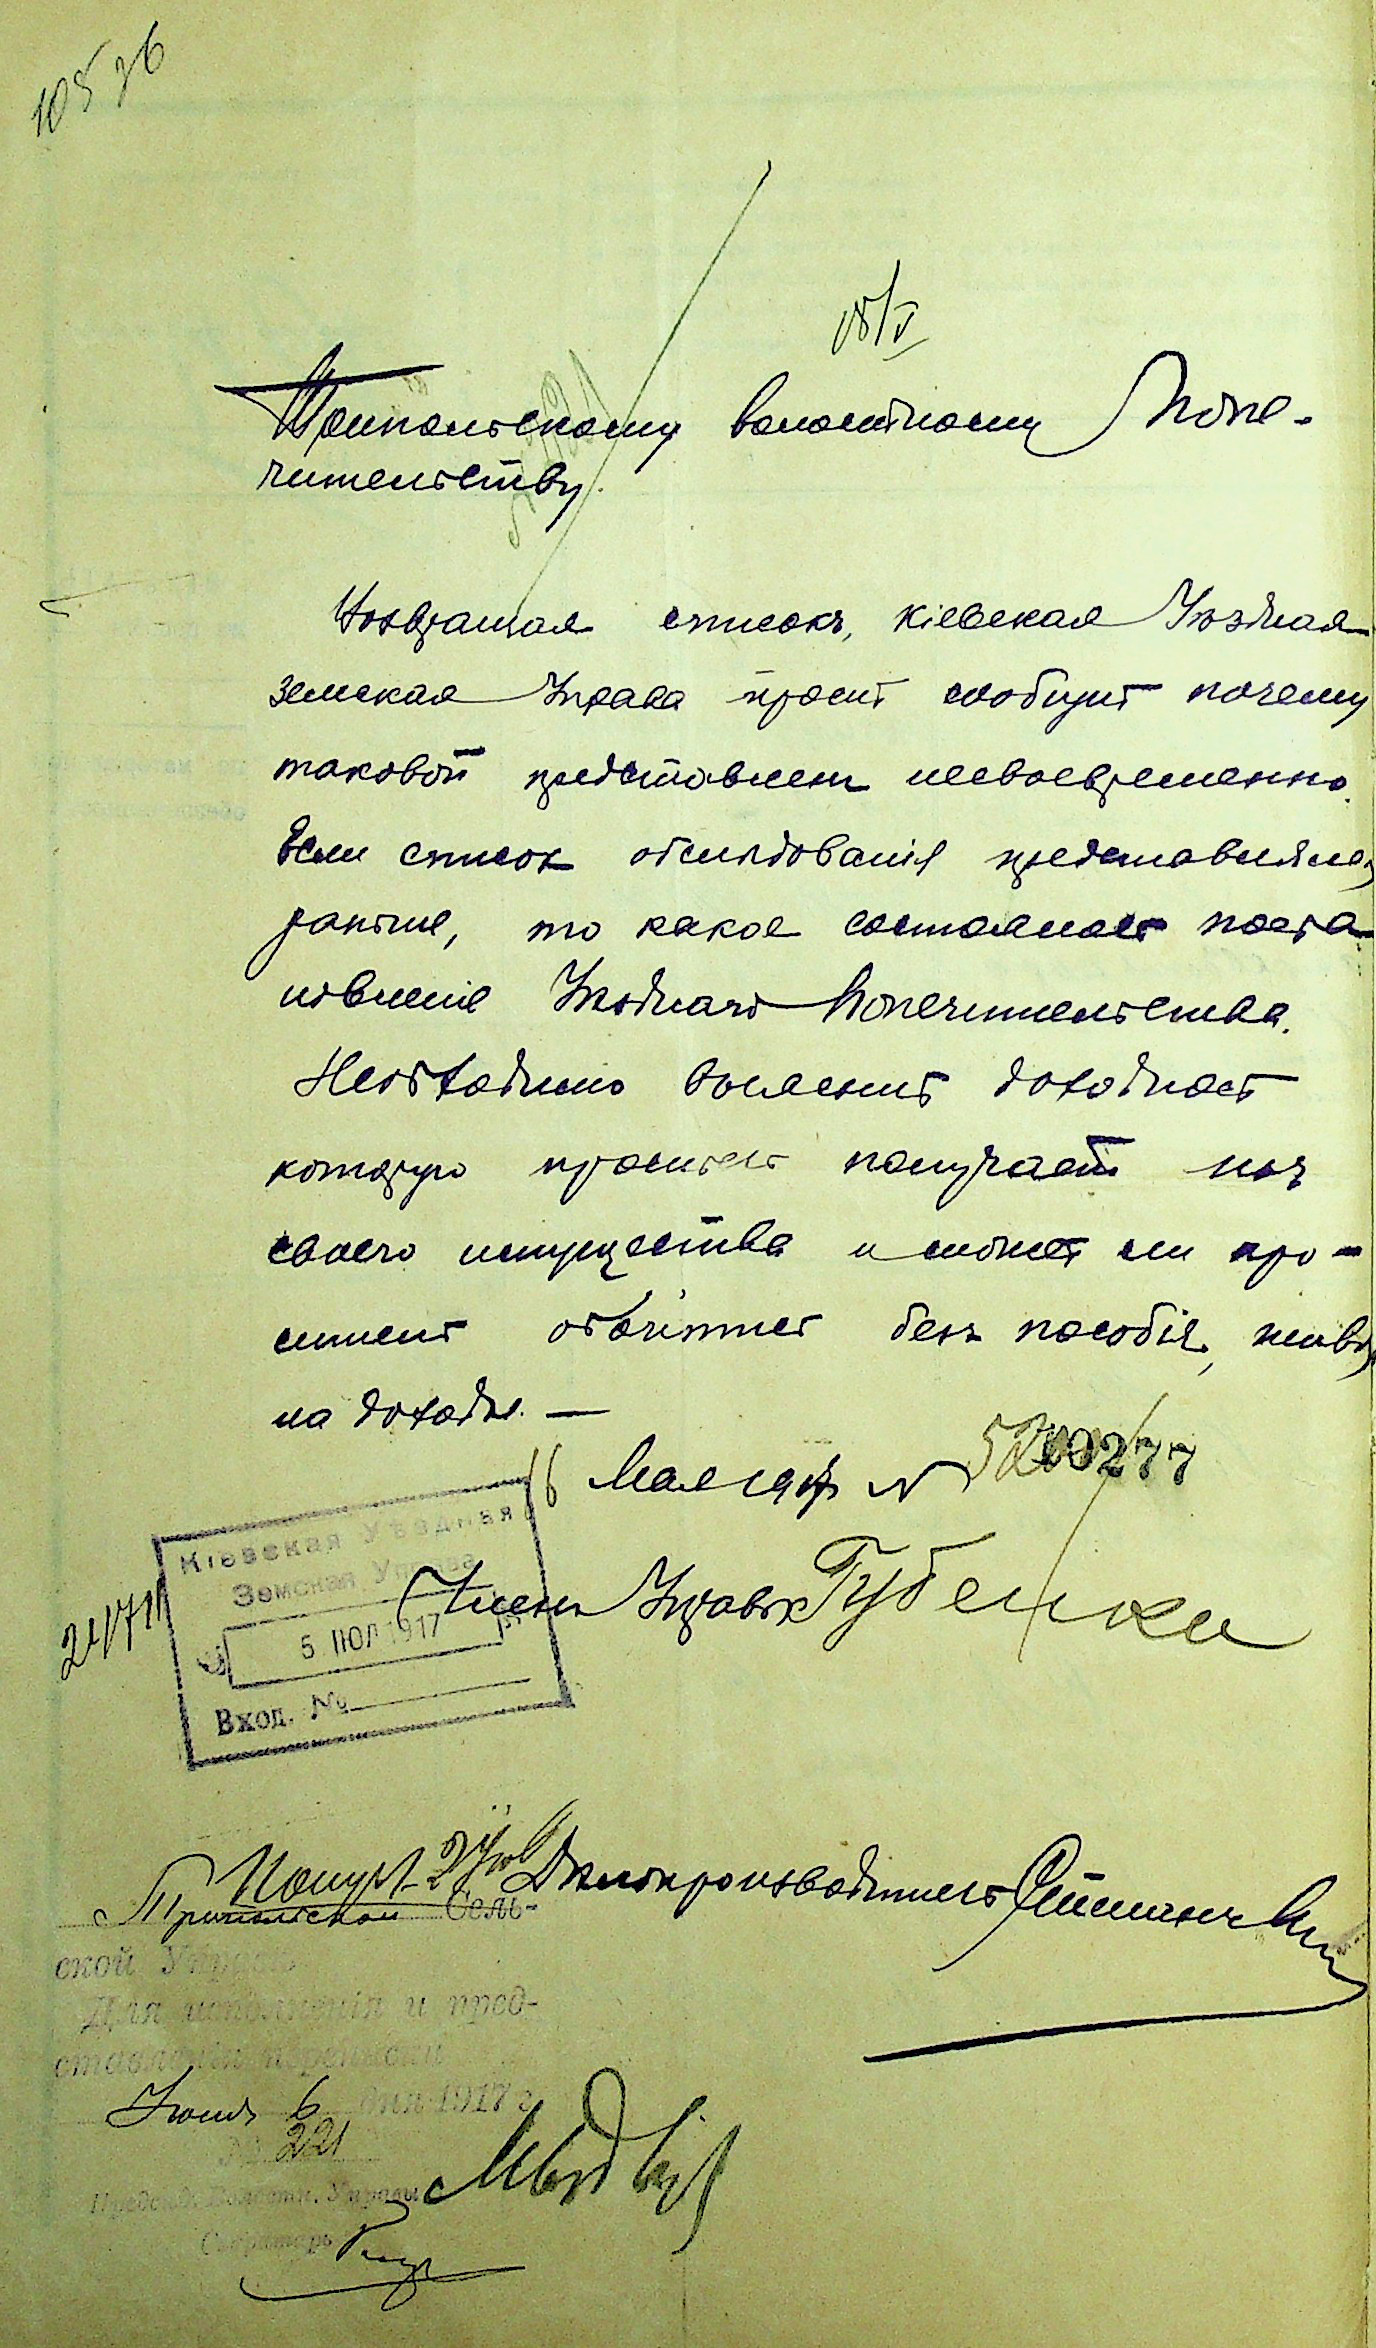 105 36
18/V
Трипольскому волостному Попе-
чительству.
Возвращая списокъ, Кіевская Уѣздная
Земская Управа просит сообщит почему
таковой представлен несвоевременно.
Если список обслѣдованія представлялся
раньше, то какое состоялось поста-
новленіе Уѣзднаго Попечительства.
Необходимо выяснить доходност
которую проситель получает изъ
своего имущества и может ли про-
ситель обойтись без пособія, живя
на доходы. —
16 Мая 1917 № 520277
Членъ Управы Губенко
Кіевская Уѣздная
Земская Управа
5 ІЮЛ 1917
Вход. №
Дѣлопроизводитель
Трипольской Сель-
ской Управѣ
Для исполненія и пред-
ставленія переписки
Іюня 6 дня 1917 г.
№ 221
Предсѣд. Волостн. Управы
Секретарь